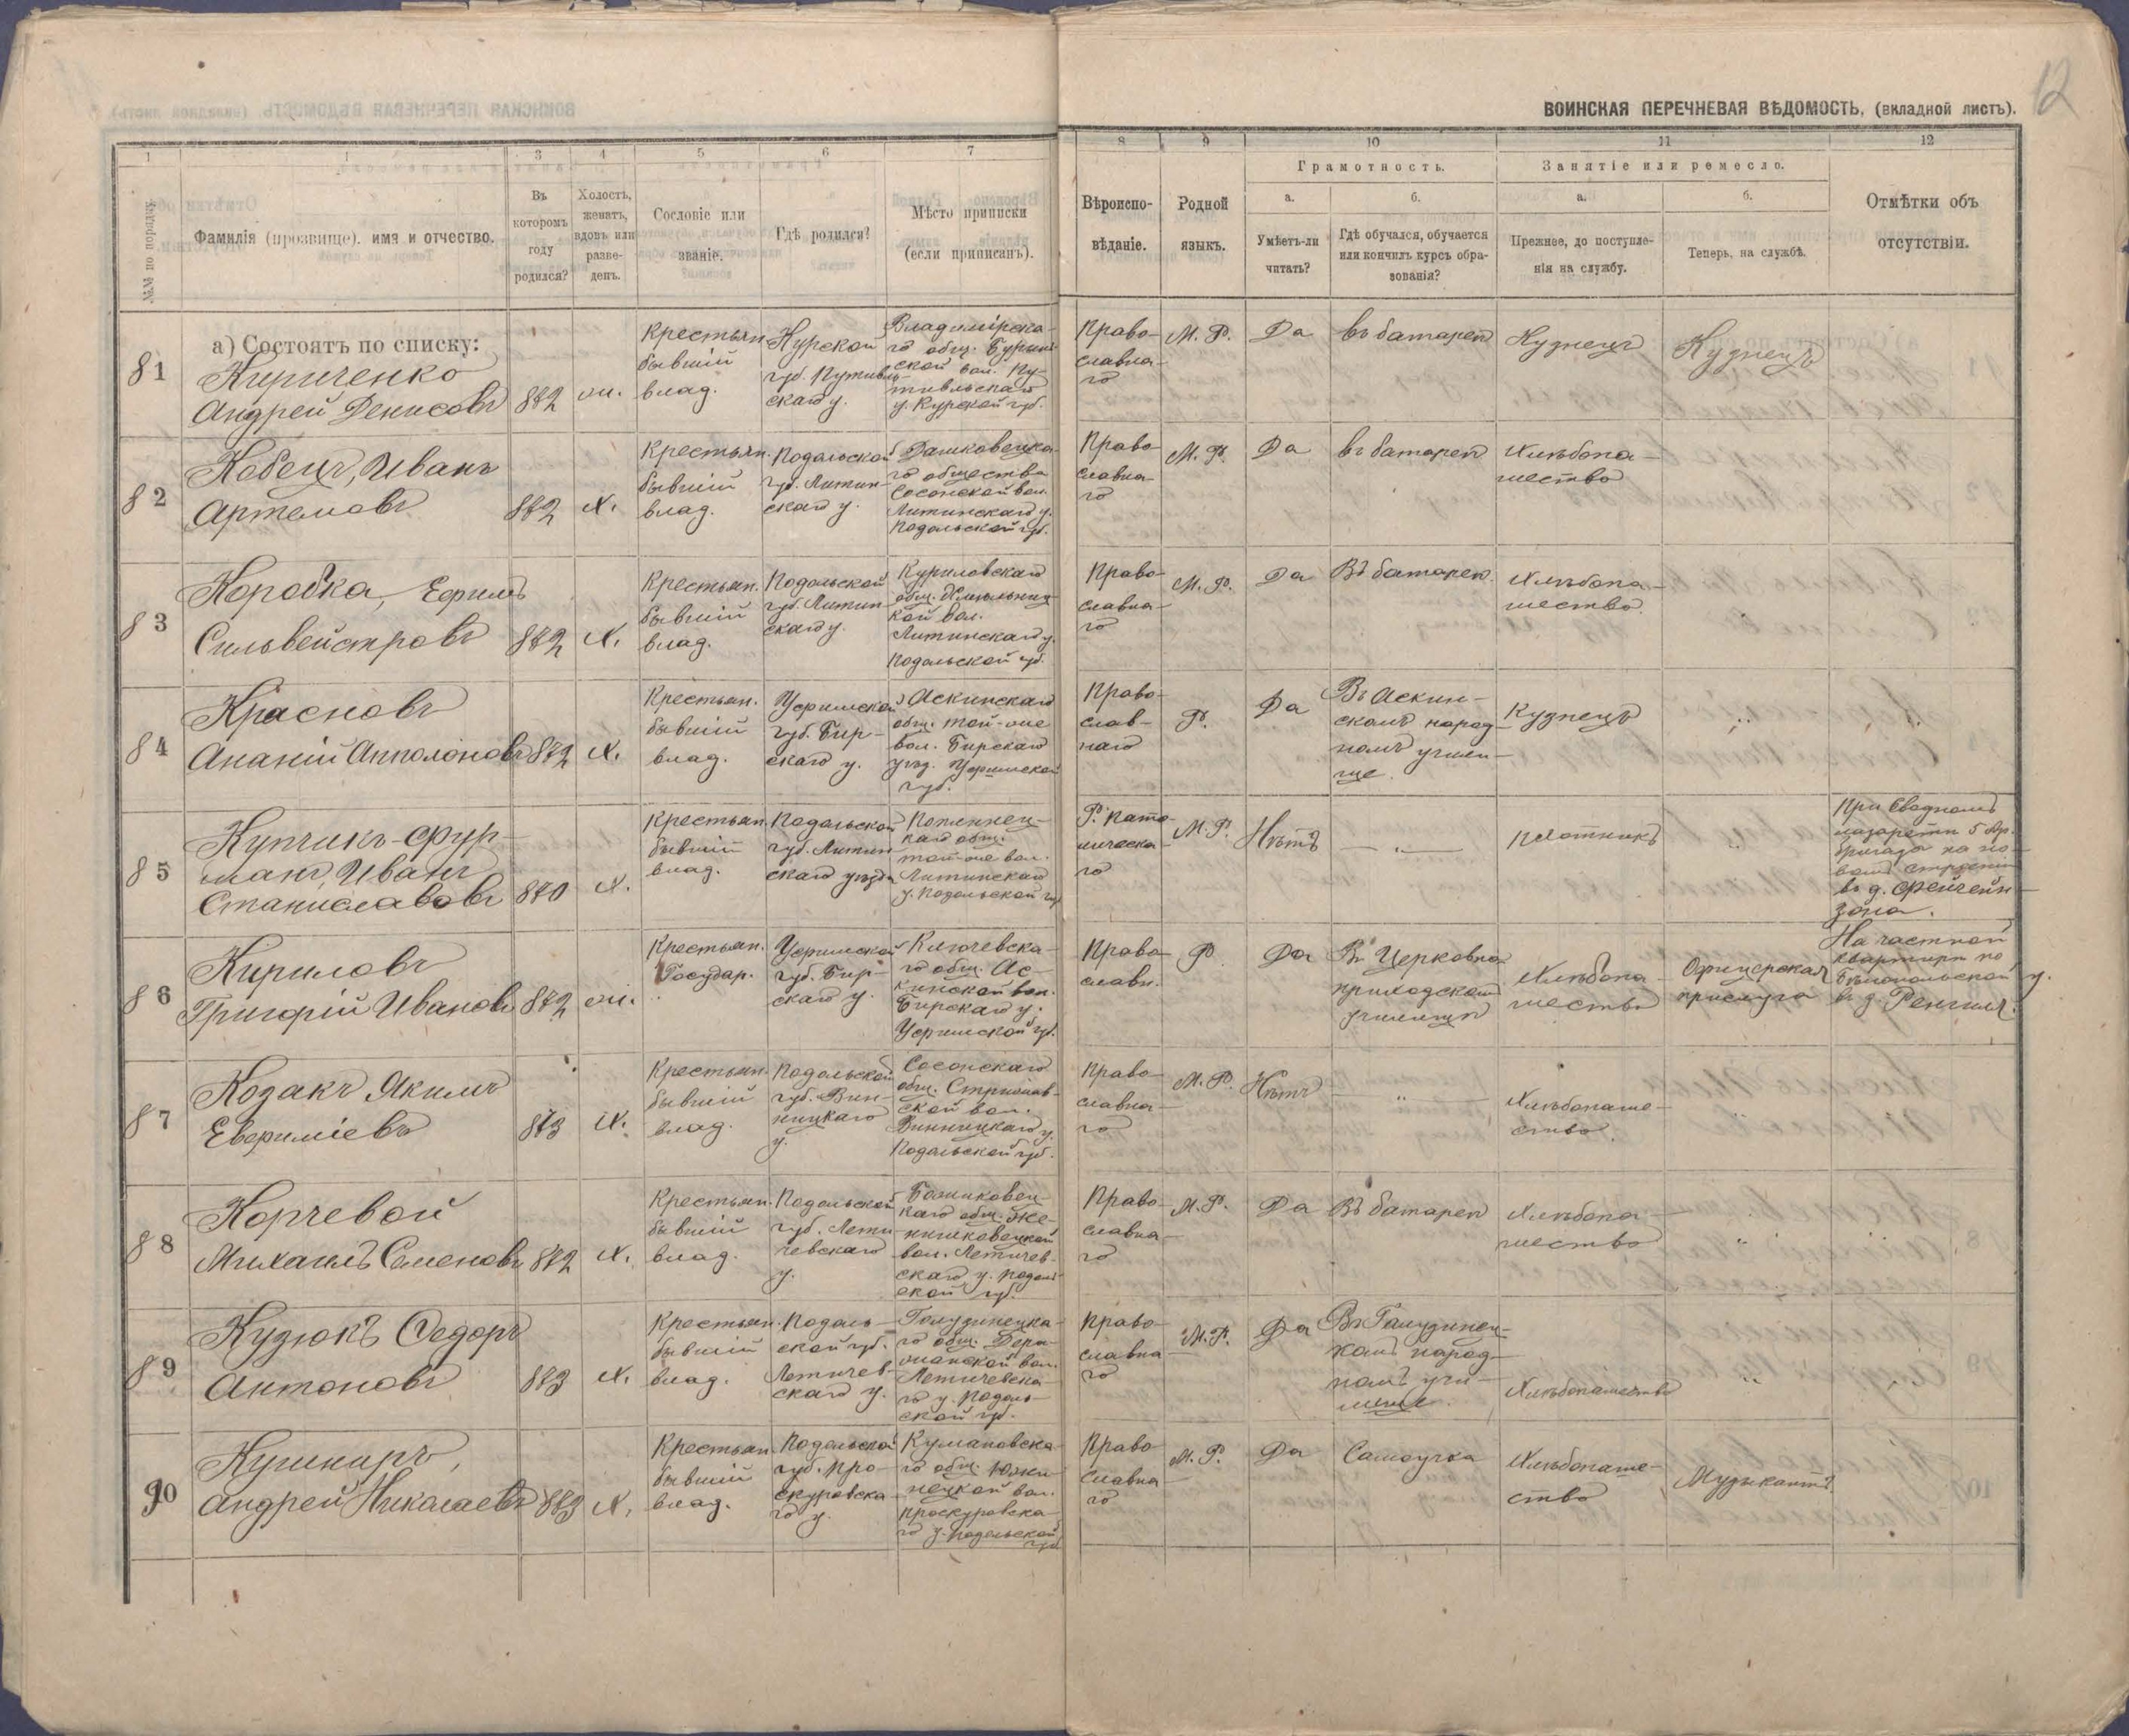 12
ВОИНСКАЯ ПЕРЕЧНЕВАЯ ВѢДОМОСТЬ, (вкладной листъ).
1
3
4
5
6
7
8
9
10
11
12
№№ по порядку.
Фамилія (прозвище). имя и отчество.
Въ
которомъ
году
родился?
Холостъ,
женатъ,
вдовъ или
разве-
денъ.
Сословіе или
званіе.
Гдѣ родился?
Мѣсто приписки
(если приписанъ).
Вѣроиспо-
вѣданіе.
Родной
языкъ.
Грамотность.
а.
Умѣетъ-ли
читать?
б.
Гдѣ обучался, обучается
или кончилъ курсъ обра-
зованія?
Занятіе или ремесло.
а.
Прежнее, до поступле-
нія на службу.
б.
Теперь, на службѣ.
Отмѣтки объ
отсутствіи.
а) Состоятъ по списку:
81
Кириченко
Андрей Денисовъ
872
ж.
Крестьян.
бывшій
влад.
Курской
губ. Путивль-
скаго у.
Владимірска-
го общ. Бурын-
ской вол. Пу-
тивльскаго
у. Курской губ.
Право-
славна-
го
М. Р.
Да
въ батареѣ
Кузнецъ
Кузнецъ
82
Кобецъ, Иванъ
Артемовъ
872
х.
Крестьян.
бывшій
влад.
Подольской
губ. Литин-
скаго у.
Дашковецка-
го общества
Сосонской вол.
Литинскаго у.
Подольской губ.
Право-
славна-
го
М. Р.
Да
въ батареѣ
Хлѣбопа-
шество
83
Коробка, Ефимъ
Сильвейстровъ
872
х.
Крестьян.
бывшій
влад.
Подольской
губ. Литин-
скаго у.
Куриловскаго
общ. Хмѣльниц-
кой вол.
Литинскаго у.
Подольской губ.
Право-
славна-
го
М. Р.
Да
Въ батареѣ.
Хлѣбопа-
шество.
84
Красновъ
Ананій Апполоновъ
872
х.
Крестьян.
бывшій
влад.
Уфимской
губ. Бир-
скаго у.
Аскинскаго
общ. той-же
вол. Бирскаго
уѣзд. Уфимской
губ.
Право-
слав-
наго
Р.
Да
Въ Аскин-
скомъ народ-
номъ учили-
ще.
Кузнецъ
"
"
85
Купчикъ-Фур-
манъ, Иванъ
Станиславовъ
870
х.
Крестьян.
бывшій
влад.
Подольской
губ. Литин-
скаго уѣзда
каго общ.
той-же вол.
Литинскаго
у. Подольской губ.
Р. Като-
лическа-
го
М. Р.
Нѣтъ
— " —
Плотникъ
"
При Сводномъ
лазаретѣ 5 Ар.
бригады на но-
86
Кириловъ
Григорій Ивановъ
872
ж.
Крестьян.
Государ.
Уфимской
губ. Бир-
скаго у.
Ключевска-
го общ. Ас-
кинской вол.
Бирскаго у.
Уфимской губ.
Право-
славн.
Р.
Да
Въ Церковно-
приходской
училищѣ
Хлѣбопа-
шество
Офицерская
прислуга
На частной
квартирѣ по
87
Козакъ Якимъ
Евфиміевъ
873
х.
Крестьян.
бывшій
влад.
Подольской
губ. Вин-
ницкаго
у.
Сосонскаго
общ. Стрижав-
ской вол.
Винницкаго у.
Подольской губ.
Право-
славна-
го
М. Р.
Нѣтъ
— " —
Хлѣбопаше-
ство.
"
88
Корчевой
Михаилъ Семеновъ
872
х.
Крестьян.
бывшій
влад.
Подольской
губ. Лети-
чевскаго
у.
Божиковец-
каго общ. Же-
нишковецкой
вол. Летичев-
скаго у. Подоль-
ской губ.
Право-
славна-
го
М. Р.
Да
Въ батареѣ
Хлѣбопа-
шество
"
89
Кузюкъ Ѳедоръ
Антоновъ
873
х.
Крестьян.
бывшій
влад.
Подоль-
ской губ.
Летичев-
скаго у.
Голузинецка-
го общ. Дера-
жнянской вол.
Летичевска-
го у. Подоль-
ской губ.
Право-
славна-
го
М. Р.
Да
Въ Галузинец-
комъ народ-
номъ учи-
лище.
Хлѣбопашество
"
90
Кушниръ,
Андрей Николаевъ
873
х.
Крестьян.
бывшій
влад.
Подольской
губ. Про-
скуровска-
го у.
Кумановска-
го общ. Южи-
нецкой вол.
Проскуровска-
го у. Подольской
губ.
Право-
славна-
го
М. Р.
Да
Самоучка
Хлѣбопаше-
ство
Музыкантъ.